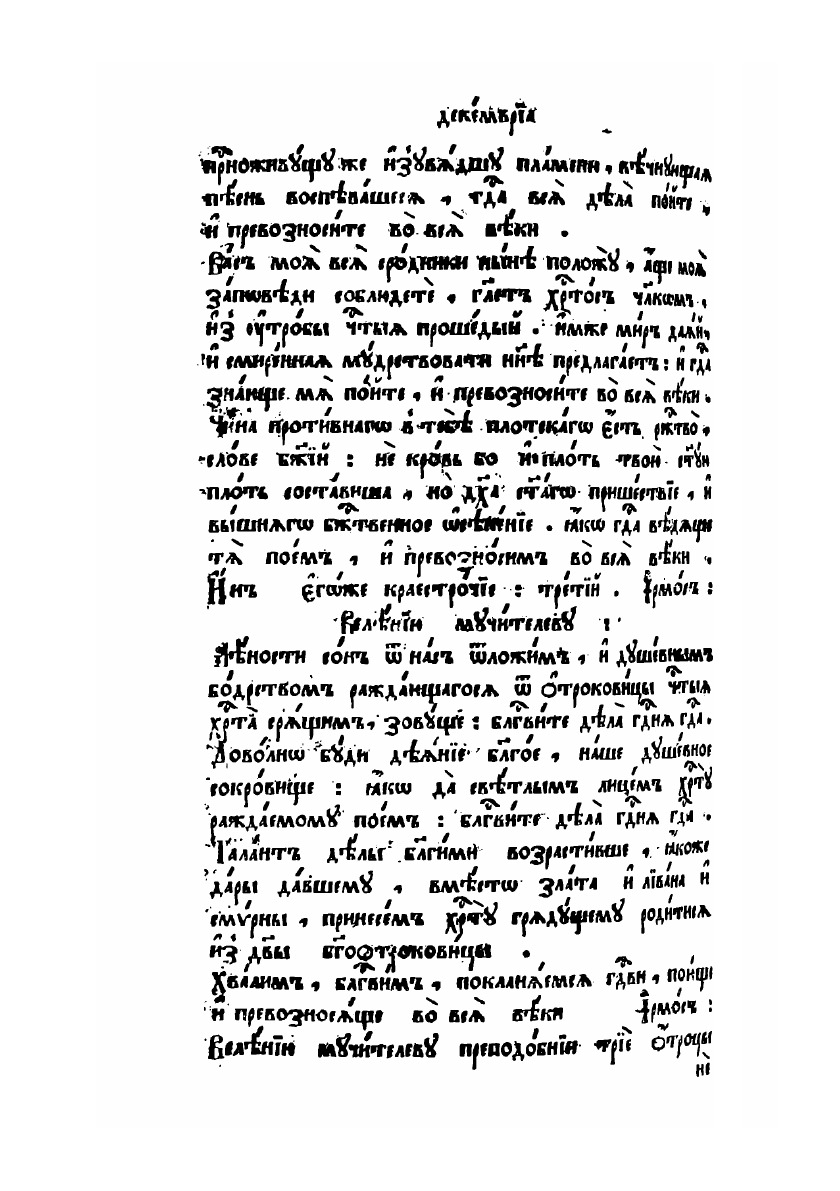 деке́мврїа
при́снѡживꙋ́щꙋ же и҆ зꙋвѧ́дшꙋ пла́мени, вѣ́чнꙋющаѧ
пѣ́снь воспѣва́шесѧ, гдⷭ҇а всѧ̀ дѣла̀ по́йте,
и҆ превозноси́те во̀ всѧ̀ вѣ́ки.
Ва́съ моѧ̀ всѧ̀ сро́дники ны́нѣ положꙋ̀, а҆́ще моѧ̀
за́повѣди соблюдетѐ, гл҃етъ хрⷭ҇то́съ чл҃кѡмъ,
и҆з̾ ᲂу҆тро́бы чⷭ҇тыѧ проше́дый. и҆́мже ми́ръ даѧ́й,
и҆ смире́ннаѧ мꙋ́дрствовати нн҃ѣ предлага́етъ: и҆ гдⷭ҇а
зна́юще мѧ̀ по́йте, и҆ превозноси́те во̀ всѧ̀ вѣ́ки.
Чи́на проти́внагѡ в̾ тебѣ̀ плотска́гѡ є҆́сть ржⷭ҇тво̀,
сло́ве бж҃їй: не кро́вь бо и҆ пло́ть твою̀ ст҃ꙋю
пло́ть соста́виша, но дх҃а ст҃а́гѡ прише́ствїе, и҆
вы́шнѧгѡ бжⷭ҇твенное ѡ҆сѣне́нїе. ꙗ҆́кѡ гдⷭ҇а вѣ́дѧще
тѧ̀ пое́мъ, и҆ превозно́симъ во̀ всѧ̀ вѣ́ки.
И҆́нъ є҆гѡ́же краестро́чїе: тре́тїй. І҆рмо́съ:
Велѣ́нїю мꙋчи́телевꙋ:
Лѣ́ности со́нъ ѿ на́съ ѿложи́мъ, и҆ дꙋше́внымъ
бо́дрствомъ ражда́ющагосѧ ѿ ѻ҆трокови́цы чⷭ҇тыѧ
хрⷭ҇та̀ срѧ́щимъ, зовꙋ́ще: бл҃гви́те дѣла̀ гдⷭ҇нѧ гдⷭ҇а.
Дово́лнѡ бꙋ́ди дѣѧ́нїе бл҃го́е, на́ше дꙋше́вное
сокро́вище: ꙗ҆́кѡ да̀ свѣ́тлымъ лице́мъ хрⷭ҇тꙋ̀
ражда́емомꙋ пое́мъ: бл҃гви́те дѣла̀ гдⷭ҇нѧ гдⷭ҇а.
Тала́нтъ дѣ́лы бл҃ги́ми возрасти́вше, ꙗ҆́коже
да́ры да́вшемꙋ, вмѣ́стѡ зла́та и҆ лїва́на и҆
смѵ́рны, принесе́мъ хрⷭ҇тꙋ̀ грѧдꙋ́щемꙋ роди́тисѧ
и҆з̾ дв҃ы бг҃оѻтрокови́цы.
Хва́лимъ, бл҃гви́мъ, покланѧ́емсѧ гдⷭ҇ви, пою́ще
и҆ превозносѧ́ще во̀ всѧ̀ вѣ́ки І҆рмо́съ:
Велѣ́нїю мꙋчи́телевꙋ преподо́бнїи трїѐ ѻ҆́троцы
не